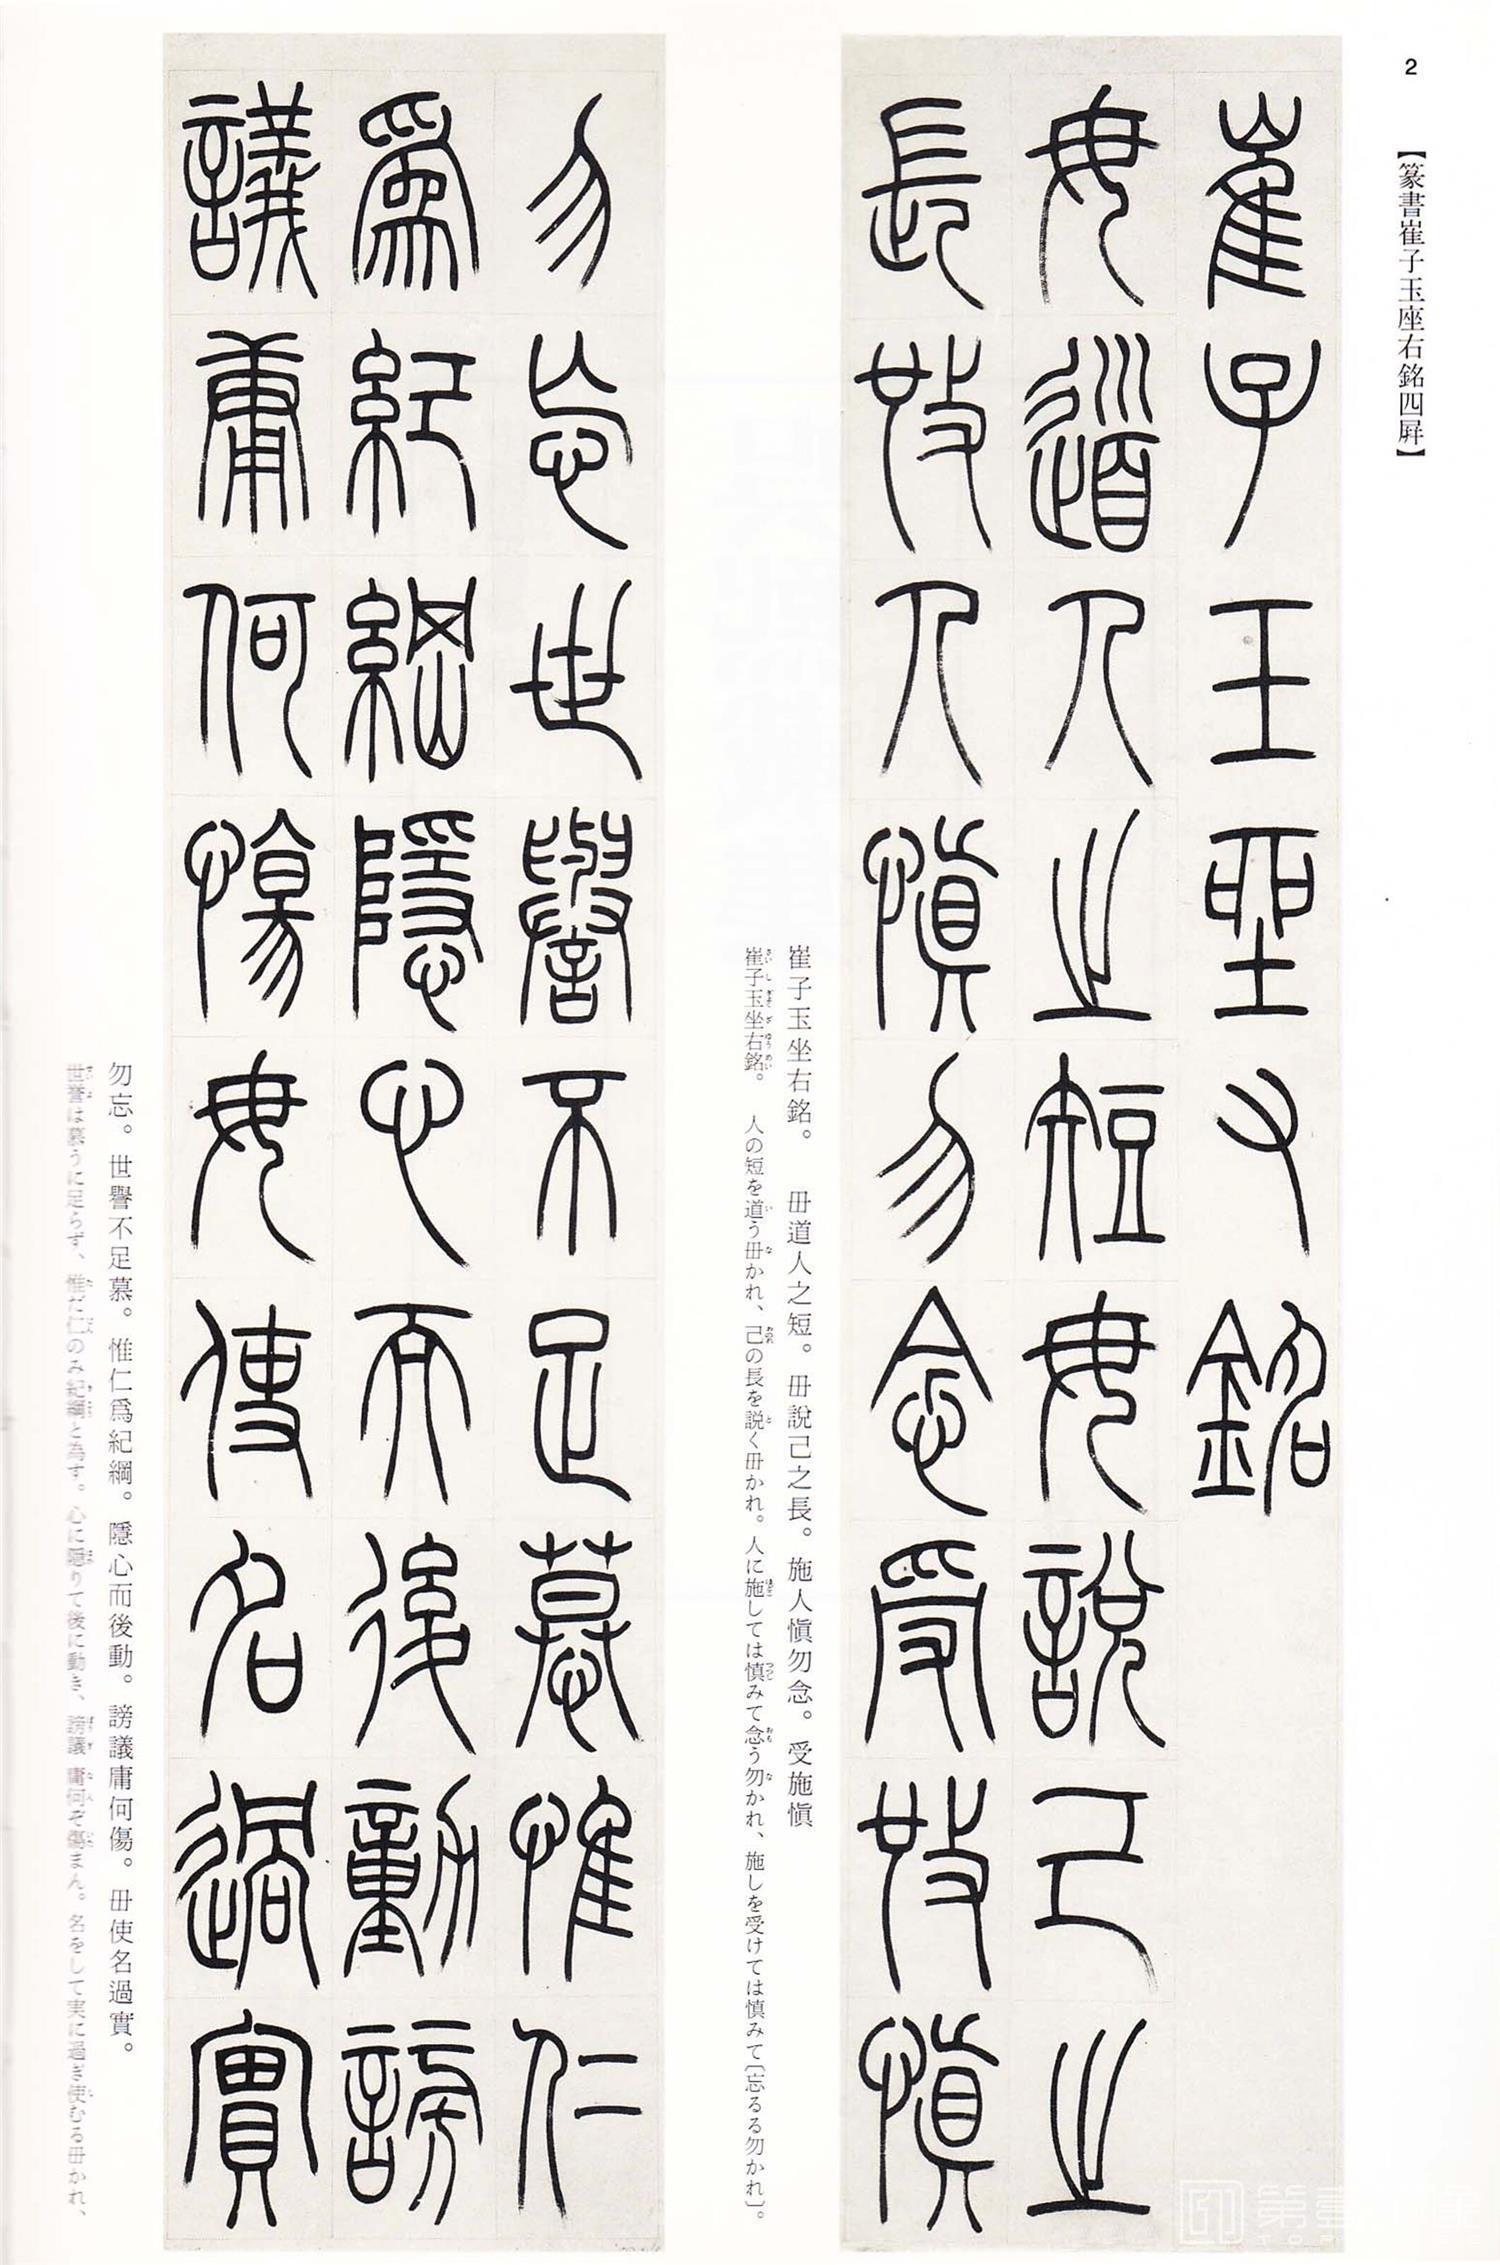 2
【篆書崔子玉座右銘四屛】
崔子玉坐右銘
毋道人之短毋說己之
長施人愼勿念受施愼
崔子玉坐右銘。　毌道人之短。毌說己之長。施人愼勿念。受施愼
崔子玉坐右銘。　人の短を道う毌かれ、己の長を説く毌かれ。人に施しては慎みて念う勿かれ、施しを受けては慎みて〔忘るる勿かれ〕。
勿忘世譽不足慕惟仁
爲紀綱隱心而後動謗
議庸何傷毋使名過實
勿忘。世譽不足慕。惟仁爲紀綱。隱心而後動。謗議庸何傷。毌使名過實。
世誉は慕うに足らず、惟だ仁のみ紀綱と為す。心に隠りて後に動き、謗議庸何ぞ傷まん。名をして実に過ぎ使むる毌かれ、